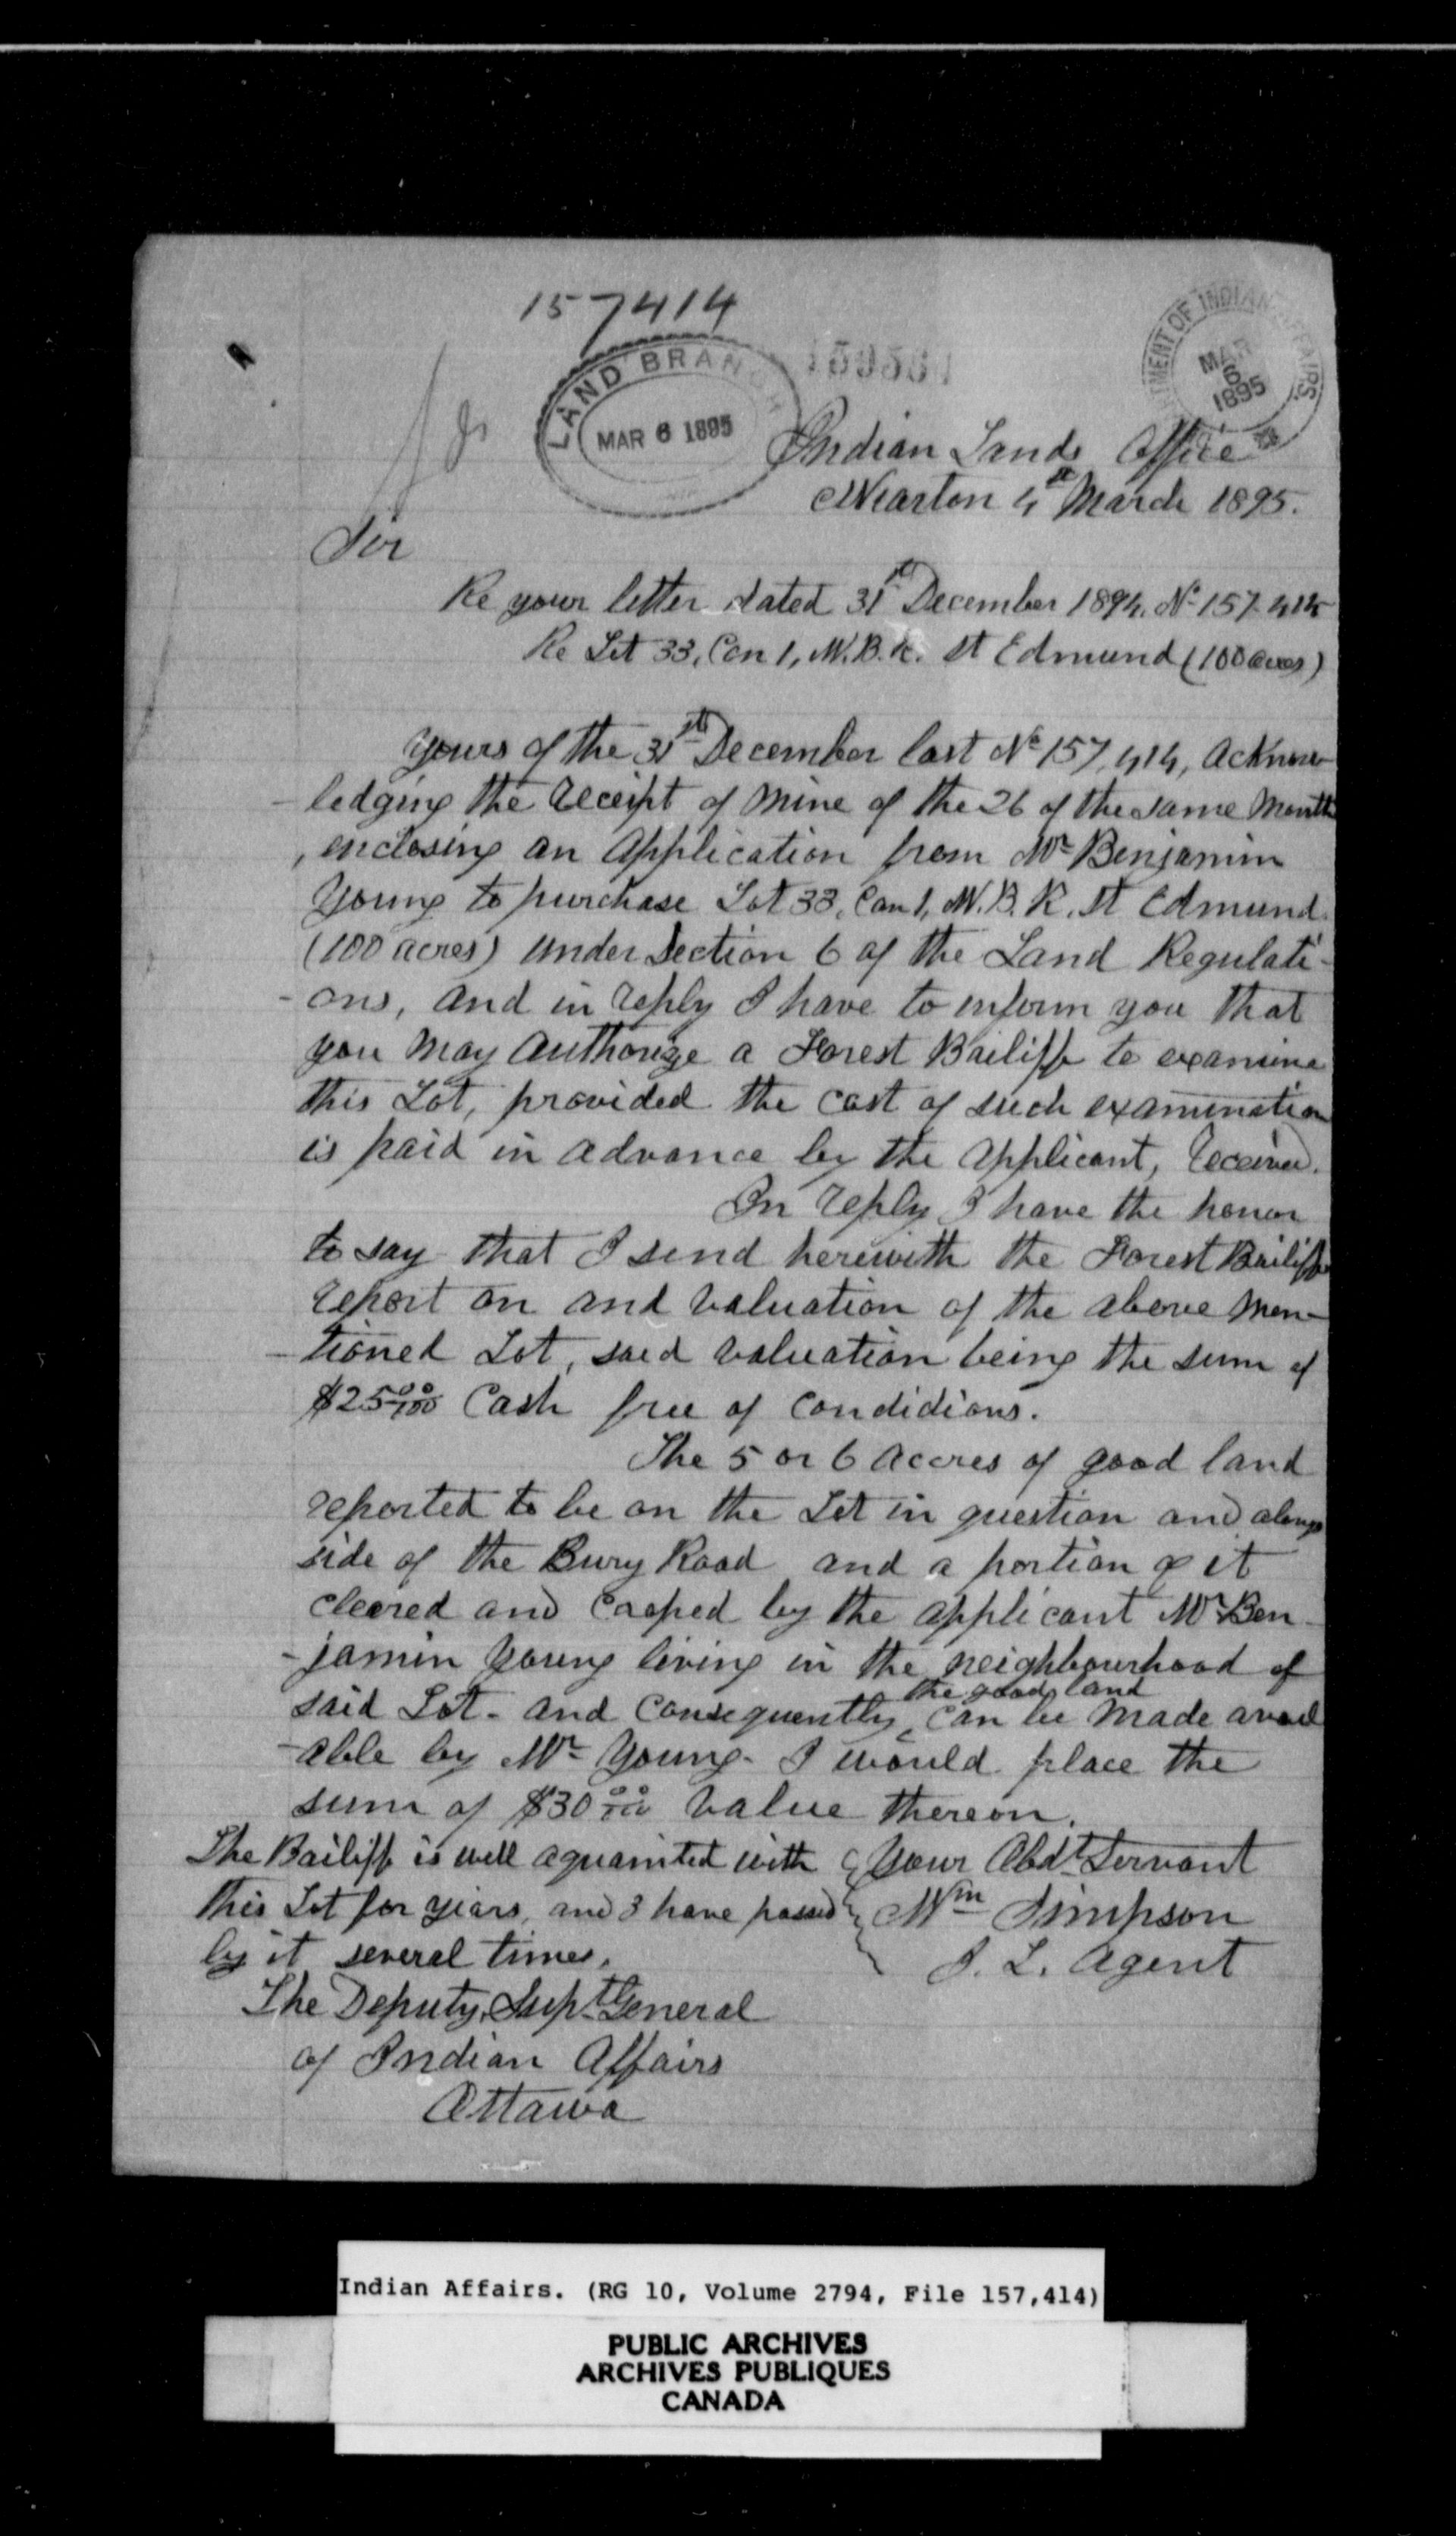 157414
LAND BRANCH
MAR 6 1895
DEPARTMENT OF INDIAN AFFAIRS
MAR
6
1895
Indian Lands Office
Wiarton 4th March 1895.
Sir
Re your letter dated 31st December 1894. No 157.414
Re Lot 33, Con 1, W.B.R. St Edmund (100 acres)
Yours of the 31st December last No 157,414, Acknow
-ledging the receipt of mine of the 26 of the same month
, enclosing an Application from Mr Benjamin
Young to purchase Lot 33, Con 1, W.B.R. St Edmund.
(100 acres) under Section 6 of the Land Regulati-
-ons, and in reply I have to inform you that
you may authorize a Forest Bailiff to examine
this Lot, provided the cost of such examination
is paid in advance by the applicant, received.
In reply I have the honor
to say that I send herewith the Forest Bailiffs
report on and valuation of the above men-
-tioned Lot, said valuation being the sum of
$25 00/100 Cash free of condidions.
The 5 or 6 accres of good land
reported to be on the Lot in question and along
side of the Bury Road and a portion of it
cleared and croped by the applicant Mr Ben-
-jamin Young living in the neighbourhood of
said Lot. and consequently the good land can be made avail
-able by Mr Young. I would place the
sum of $30 00/100 value thereon.
The Bailiff is well aquainted with
this Lot for years, and I have passed
by it several times.
Your Obdt Servant
Wm Simpson
I. L. Agent
The Deputy Supt General
of Indian Affairs
Ottawa
Indian Affairs. (RG 10, Volume 2794, File 157,414)
PUBLIC ARCHIVES
ARCHIVES PUBLIQUES
CANADA